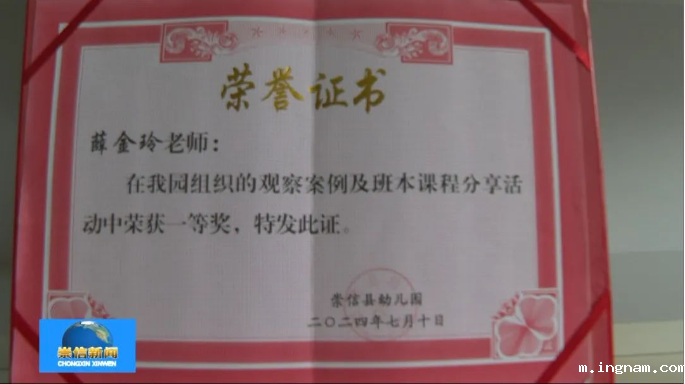 荣誉证书
薛金玲老师：
在我园组织的观察案例及班本课程分享活
动中荣获一等奖，特发此证。
崇信县幼儿园
二〇二四年七月十日
崇信新闻
CHONGXIN XINWEN
m.ingnam.com